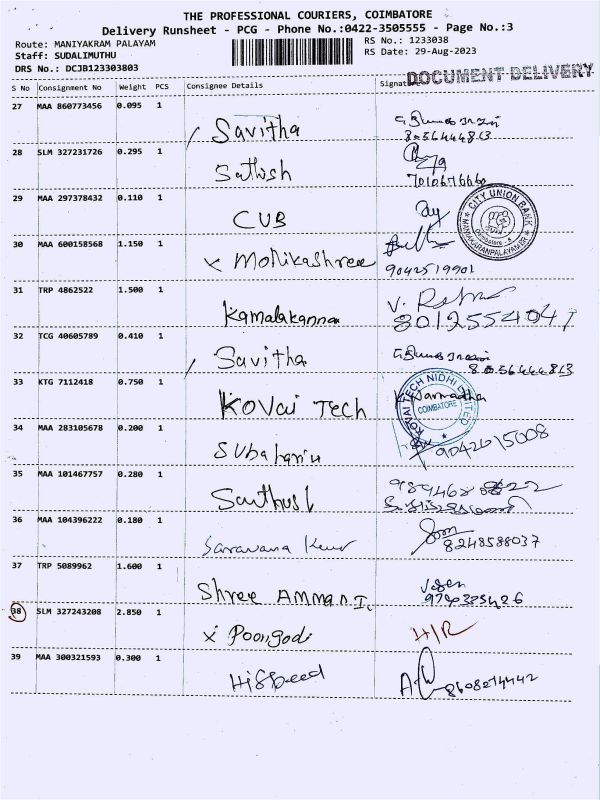 THE PROFESSIONAL COURIERS, COIMBATORE
Delivery Runsheet - PCG - Phone No.:0422-3505555 - Page No.:3
Route: MANIYAKRAM PALAYAM
RS No.: 1233038
Staff: SUDALIMUTHU
RS Date: 29-Aug-2023
DRS No.: DCJB123303803
DOCUMENT DELIVERY
S No Consignment No Weight PCS Consignee Details Signature
27 MAA 860773456 0.095 1
Savitha
8056444813
28 SLM 327231726 0.295 1
Sathish
29 MAA 297378432 0.110 1
CUB
CITY UNION BANK
Coimbatore
30 MAA 600158568 1.150 1
x Monikashree
9042519901
31 TRP 4862522 1.500 1
Kamalakannan
8012554047
32 TCG 40605789 0.410 1
Savitha
8056444813
33 KTG 7112418 0.750 1
Kovai Tech
KOVAI TECH NIDHI LIMITED
COIMBATORE
34 MAA 283105678 0.200 1
9042615008
35 MAA 101467757 0.280 1
36 MAA 104396222 0.180 1
Saravana
8248588037
37 TRP 5089962 1.600 1
Shree Amman I.
38 SLM 327243208 2.850 1
x Poongodi
H/R
39 MAA 300321593 0.300 1
HiSpeed